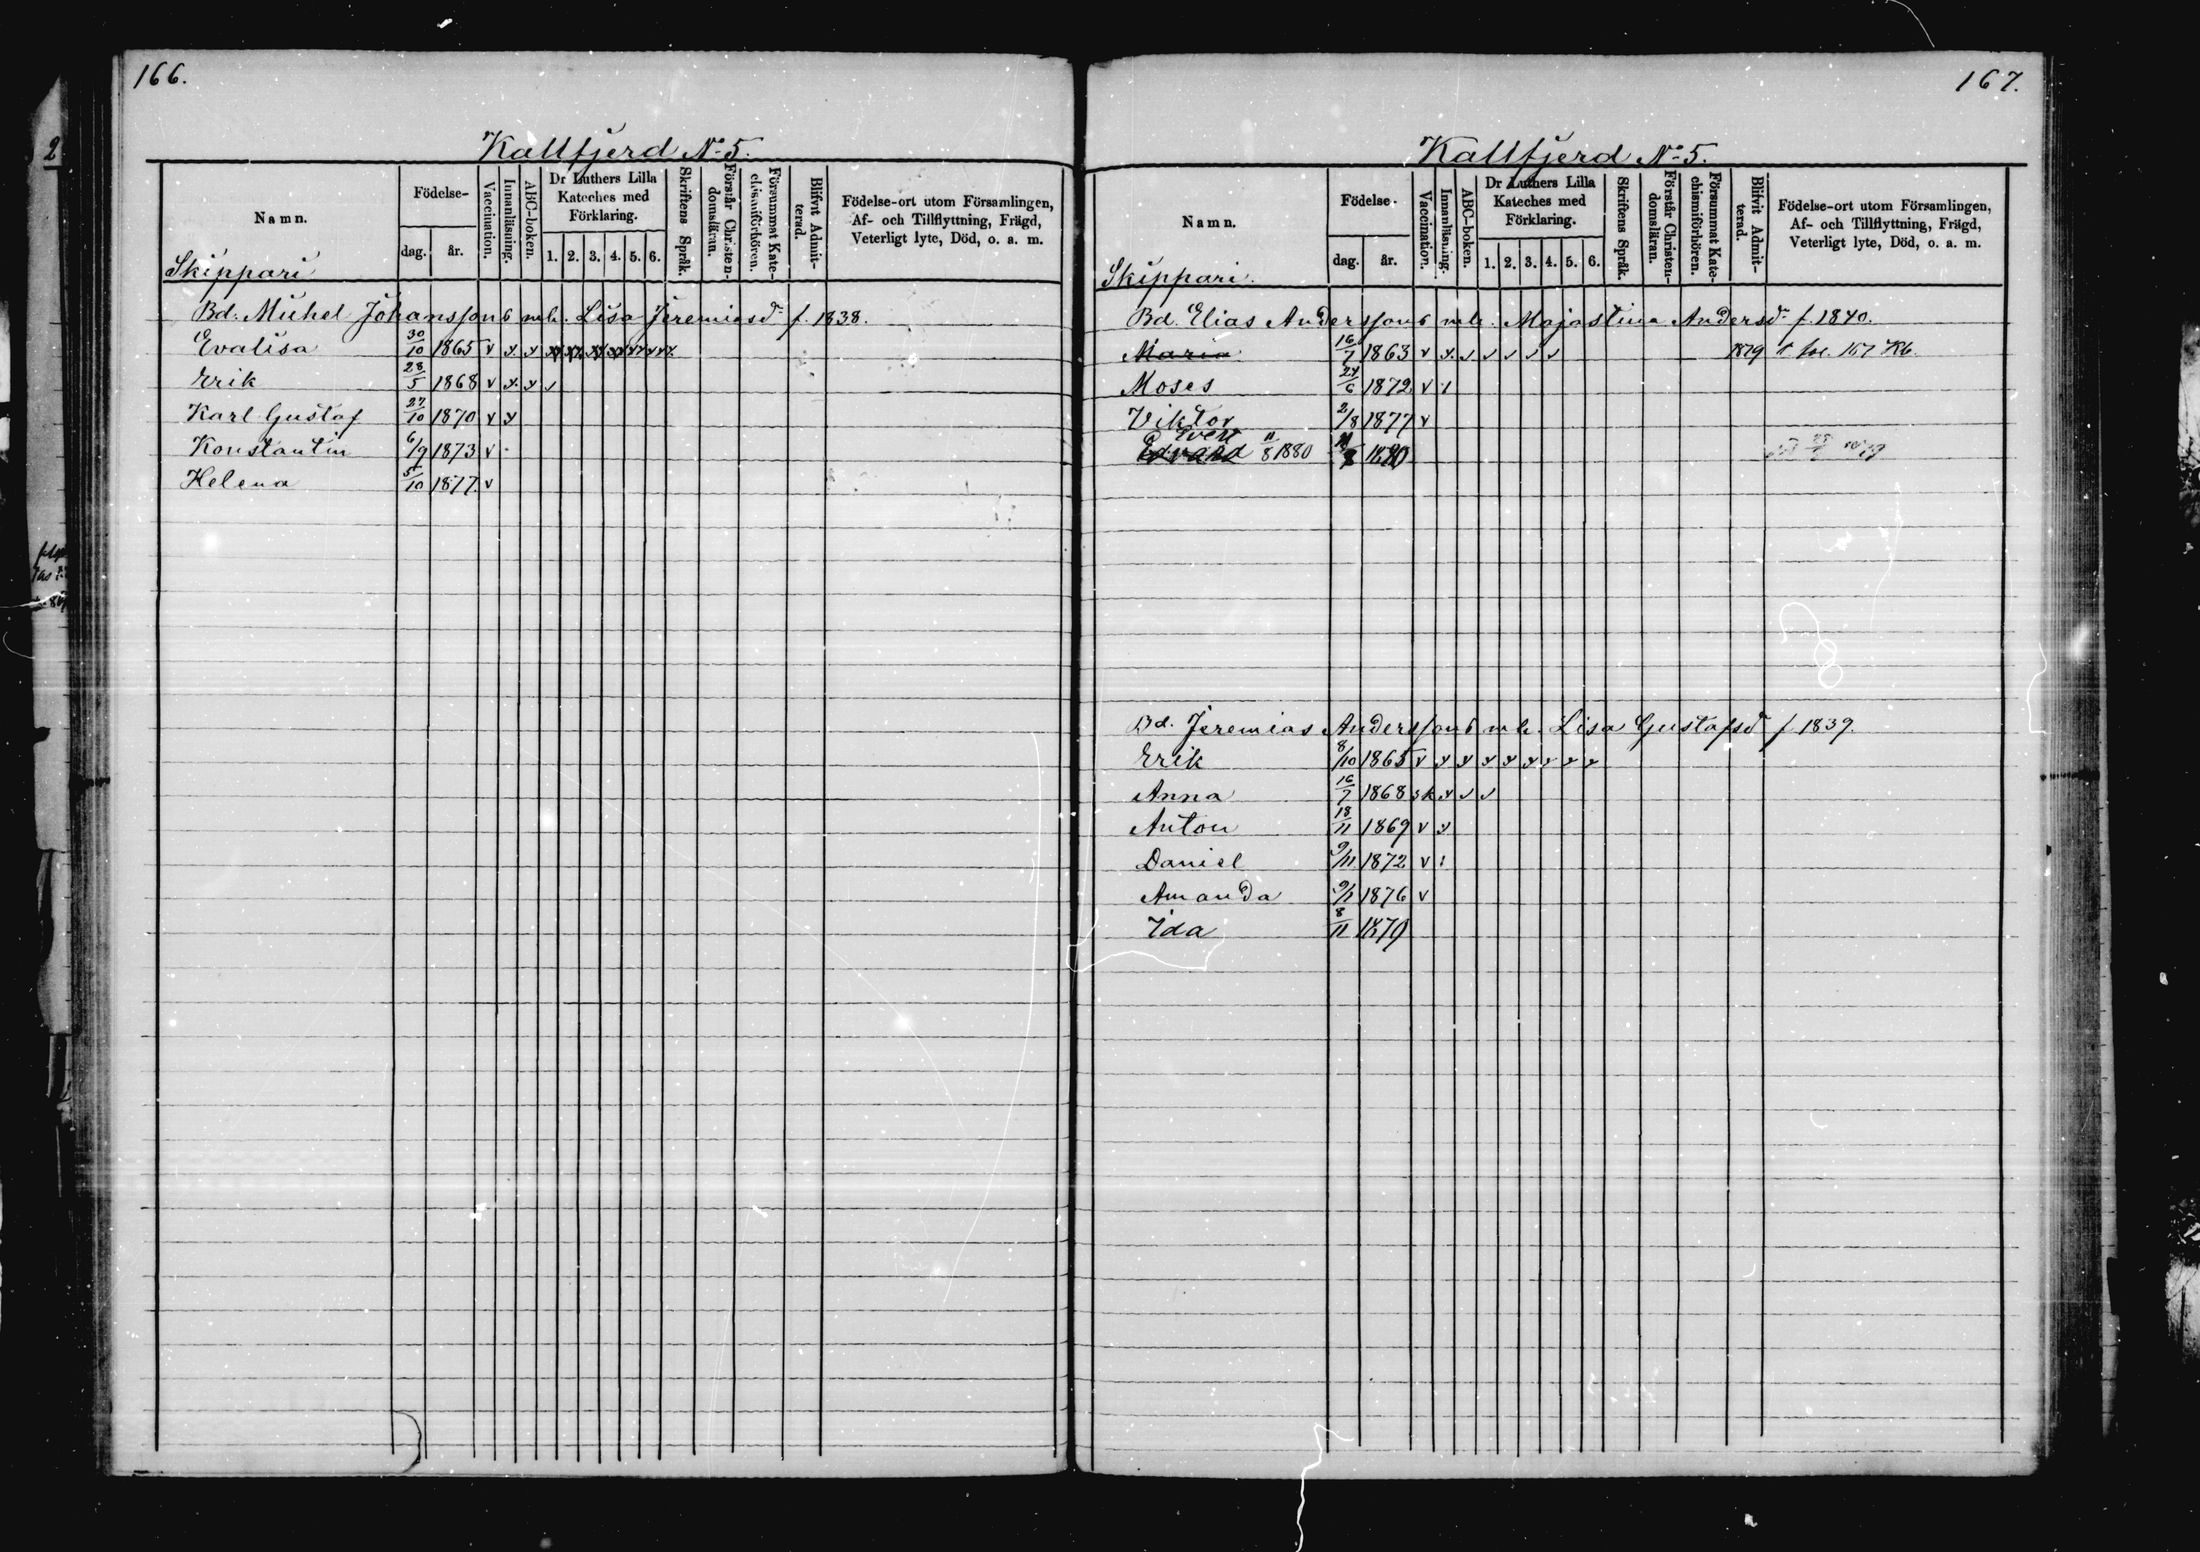 166.
Kallfjerd No 5.
Namn.
Födelse-
dag.
år.
Vaccination.
Innanläsning.
ABC-boken.
Dr Luthers Lilla
Kateches med
Förklaring.
1. 2. 3. 4. 5. 6.
Skriftens Språk.
Förstår Christen-
domsläran.
Försummat Kate-
chismiförhören.
Blifvit Admit-
terad.
Födelse-ort utom Församlingen,
Af- och Tillflyttning, Frägd,
Veterligt lyte, Död, o. a. m.
Skippari
Bd. Michel Johanssons mh. Lisa Jeremiasdr f. 1838.
Evalisa 30/10 1865 v
Erik 28/5 1868 v
Karl Gustaf 27/10 1870 v
Konstantin 6/9 1873 v
Helena 5/10 1877. v
167.
Kallfjerd No 5.
Namn.
Födelse-
dag.
år.
Vaccination.
Innanläsning.
ABC-boken.
Dr Luthers Lilla
Kateches med
Förklaring.
1. 2. 3. 4. 5. 6.
Skriftens Språk.
Förstår Christen-
domsläran.
Försummat Kate-
chismiförhören.
Blifvit Admit-
terad.
Födelse-ort utom Församlingen,
Af- och Tillflyttning, Frägd,
Veterligt lyte, Död, o. a. m.
Skippari.
Bd. Elias Anderssons mh. Majastina Andersdr f. 1840.
Maria 16/7 1863 v 1879 fol. 157 Kb.
Moses 24/6 1872 v
Viktor 2/8 1877 v
Evert
Edvard 11/8 1880 11/8 1880
Bd. Jeremias Anderssons mh. Lisa Gustafsdr f. 1839.
Erik 8/10 1865 v
Anna 16/7 1868 sk
Anton 18/11 1869 v
Daniel 9/11 1872 v
Amanda 9/1 1876 v
Ida 8/11 1879